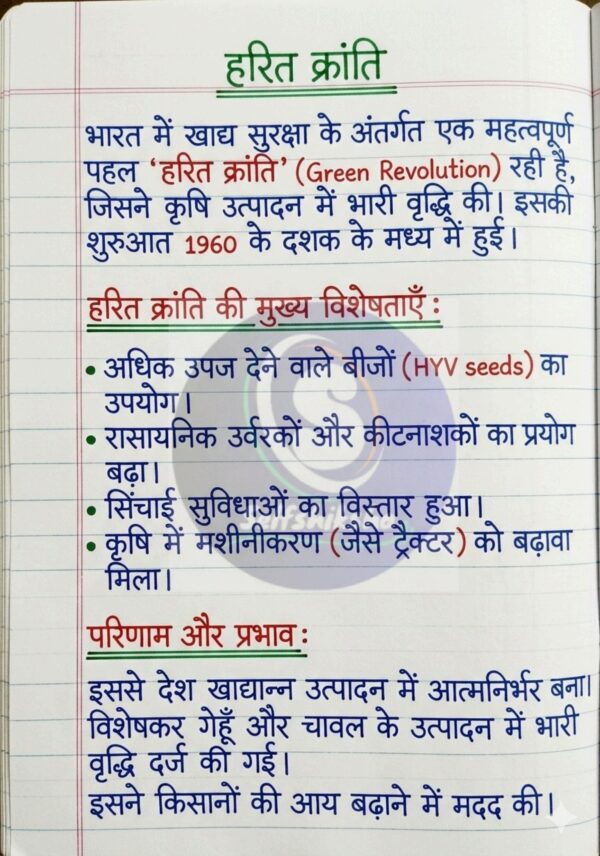 हरित क्रांति
भारत में खाद्य सुरक्षा के अंतर्गत एक महत्वपूर्ण
पहल ‘हरित क्रांति’ (Green Revolution) रही है,
जिसने कृषि उत्पादन में भारी वृद्धि की। इसकी
शुरुआत 1960 के दशक के मध्य में हुई।
हरित क्रांति की मुख्य विशेषताएँ:
• अधिक उपज देने वाले बीजों (HYV seeds) का
उपयोग।
• रासायनिक उर्वरकों और कीटनाशकों का प्रयोग
बढ़ा।
• सिंचाई सुविधाओं का विस्तार हुआ।
• कृषि में मशीनीकरण (जैसे ट्रैक्टर) को बढ़ावा
मिला।
परिणाम और प्रभाव:
इससे देश खाद्यान्न उत्पादन में आत्मनिर्भर बना।
विशेषकर गेहूँ और चावल के उत्पादन में भारी
वृद्धि दर्ज की गई।
इसने किसानों की आय बढ़ाने में मदद की।